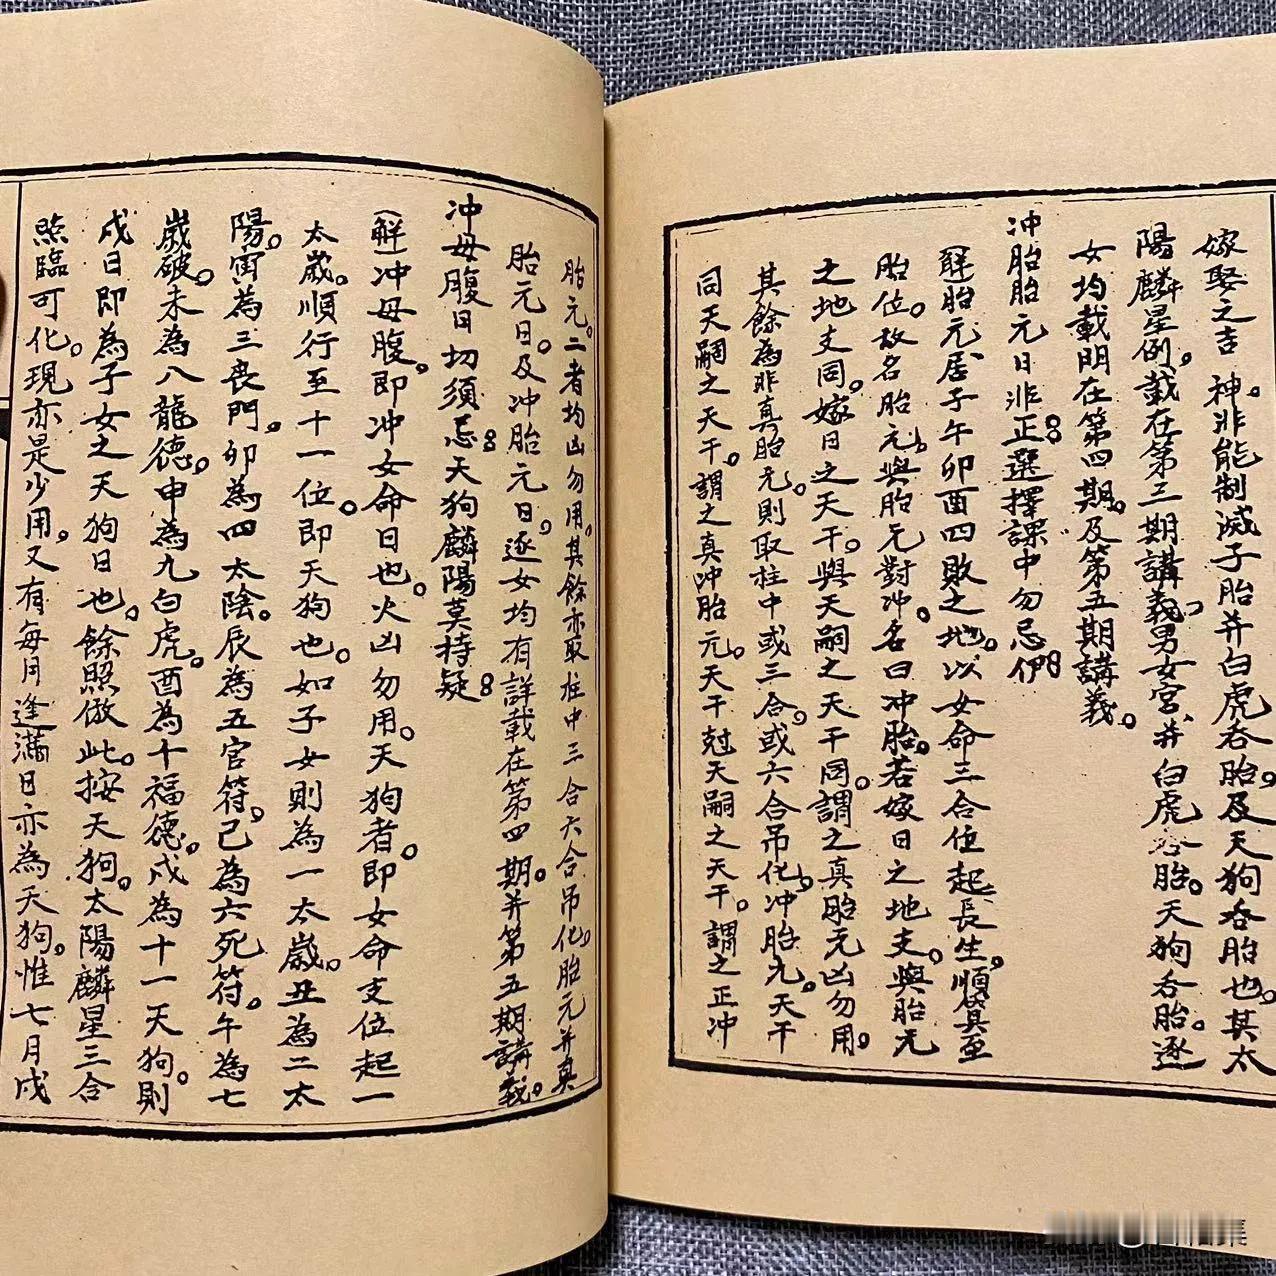 嫁娶之吉神非能制滅子胎并白虎吞胎。及天狗吞胎也。其太
陽麟星例。載在第三期講義男女宮。并白虎吞胎。天狗吞胎。逐
女均載明在第四期。及第五期講義。
冲胎胎元日非正。選擇課中勿忌伊
(解)胎元居子午卯酉四敗之地。以女命三合位起長生。順算至
胎位。故名胎元。與胎元對冲。名曰冲胎。若嫁日之地支。與胎元
之地支同。嫁日之天干。與天嗣之天干同。謂之真胎元凶勿用。
其餘為非真胎元。則取柱中或三合。或六合吊化。冲胎元。天干
同天嗣之天干。謂之真冲胎元。天干尅天嗣之天干。謂之正冲
胎元。二者均凶勿用。其餘亦取柱中三合六合吊化。胎元并真
胎元日。及冲胎元日。逐女均有詳載在第四期。并第五期講義。
冲母腹日切須忌。天狗麟陽莫持疑。
(解)冲母腹。即冲女命日也。火凶勿用。天狗者。即女命支位起一
太歲。順行至十一位。即天狗也。如子女則為一太歲。丑為二太
陽。寅為三喪門。卯為四太陰。辰為五官符。已為六死符。午為七
歲破。未為八龍德。申為九白虎。酉為十福德。戌為十一天狗。則
戌日即為子女之天狗日也。餘照倣此。按天狗。太陽麟星三合
照臨可化。現亦是少用。又有每月逢滿日亦為天狗。惟七月戌